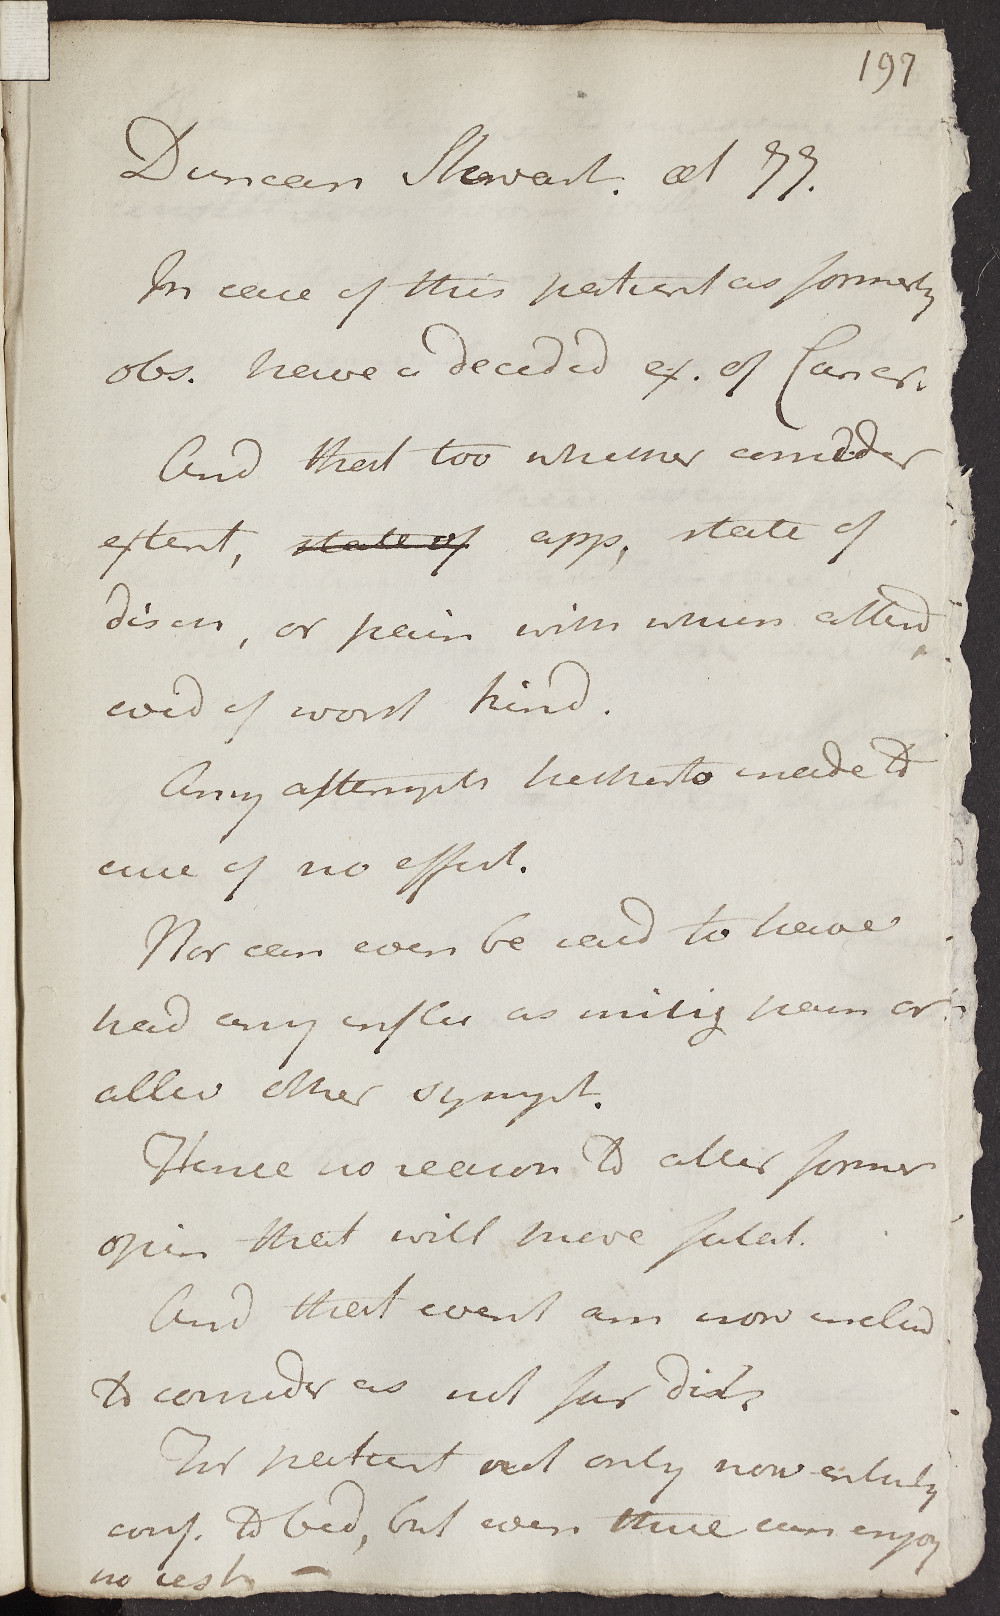 197
Duncan Stewart. æt 77.
In case of this patient as formerly
obs. have a decided ex. of Cancer.
And that too whether consider
extent, state of app, state of
disch, or pain with which attend
evid of worst kind.
Any attempts hitherto made to
cure of no effect.
Nor can even be said to have
had any influ as mitig pain or
allev other sympt.
Hence no reason to alter former
opin that will prove fatal.
And that event am now inclind
to consider as not far dist.
For patient not only now entirely
conf. to bed, but even there can enjoy
no rest –